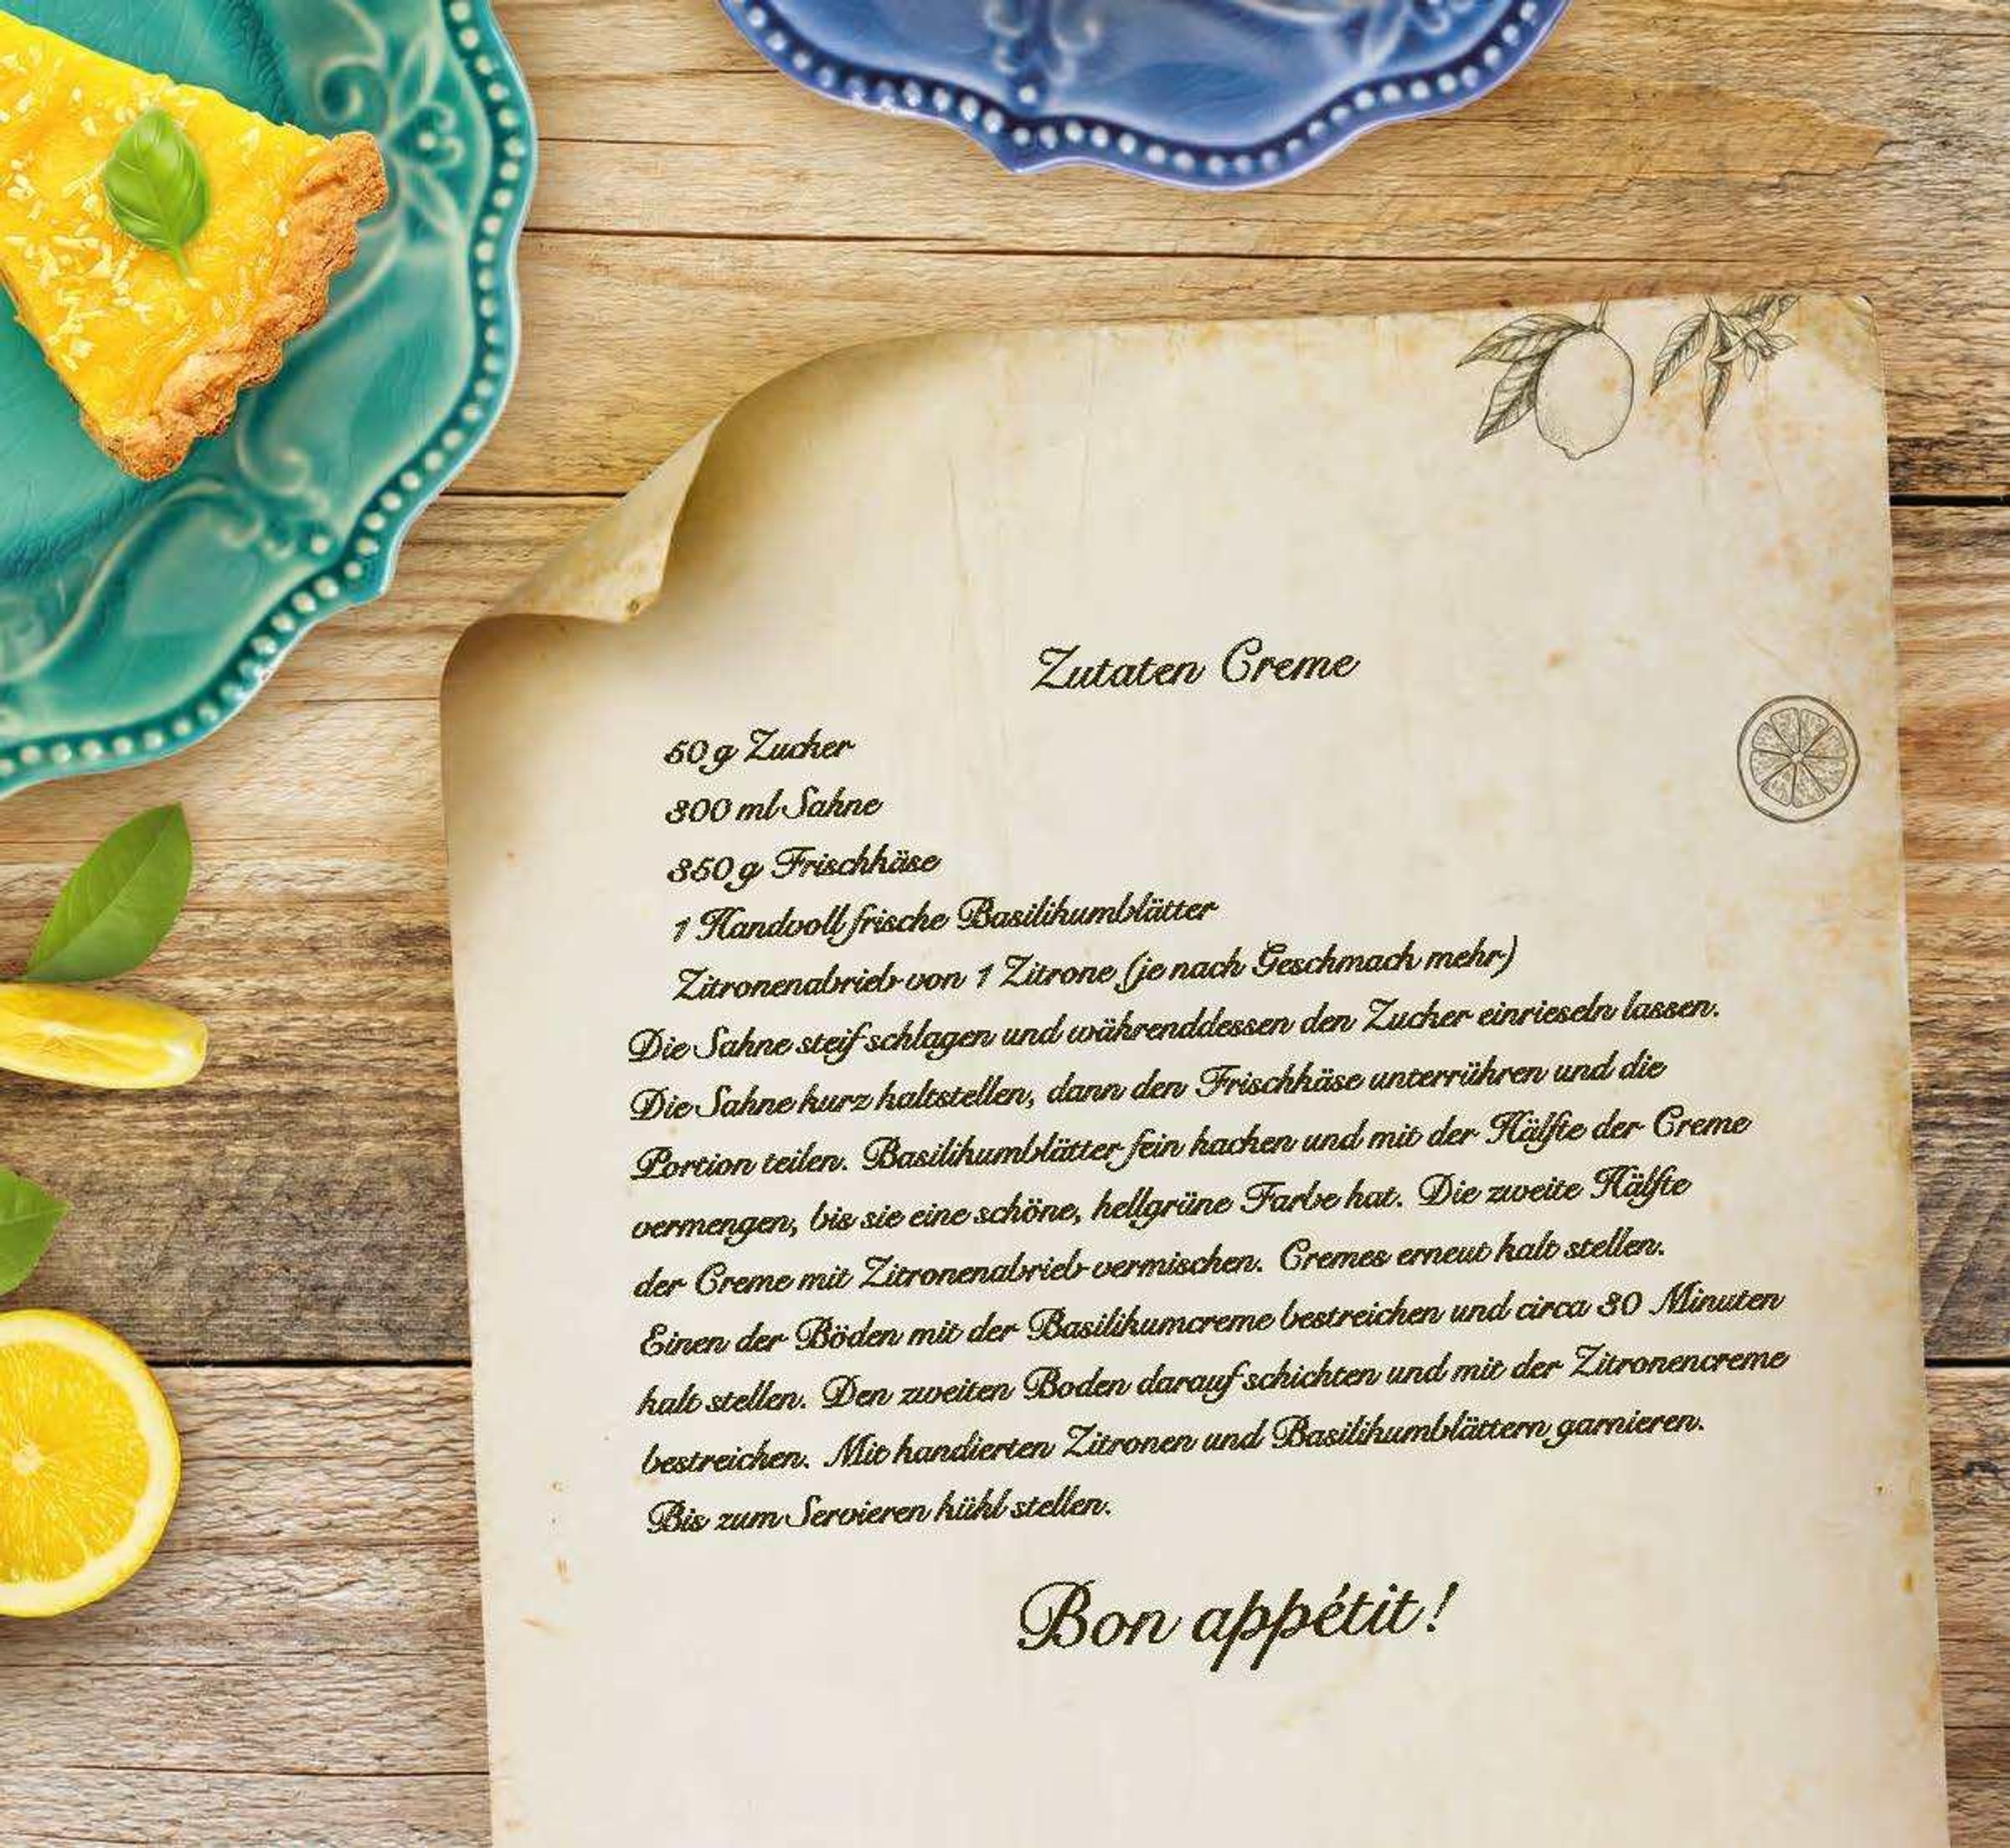 Zutaten Creme
50 g Zucker
300 ml Sahne
350 g Frischkäse
1 Handvoll frische Basilikumblätter
Zitronenabrieb von 1 Zitrone (je nach Geschmack mehr)
Die Sahne steif schlagen und währenddessen den Zucker einrieseln lassen.
Die Sahne kurz kaltstellen, dann den Frischkäse unterrühren und die
Portion teilen. Basilikumblätter fein hacken und mit der Hälfte der Creme
vermengen, bis sie eine schöne, hellgrüne Farbe hat. Die zweite Hälfte
der Creme mit Zitronenabrieb vermischen. Cremes erneut kalt stellen.
Einen der Böden mit der Basilikumcreme bestreichen und circa 30 Minuten
kalt stellen. Den zweiten Boden darauf schichten und mit der Zitronencreme
bestreichen. Mit kandierten Zitronen und Basilikumblättern garnieren.
Bis zum Servieren kühl stellen.
Bon appétit!